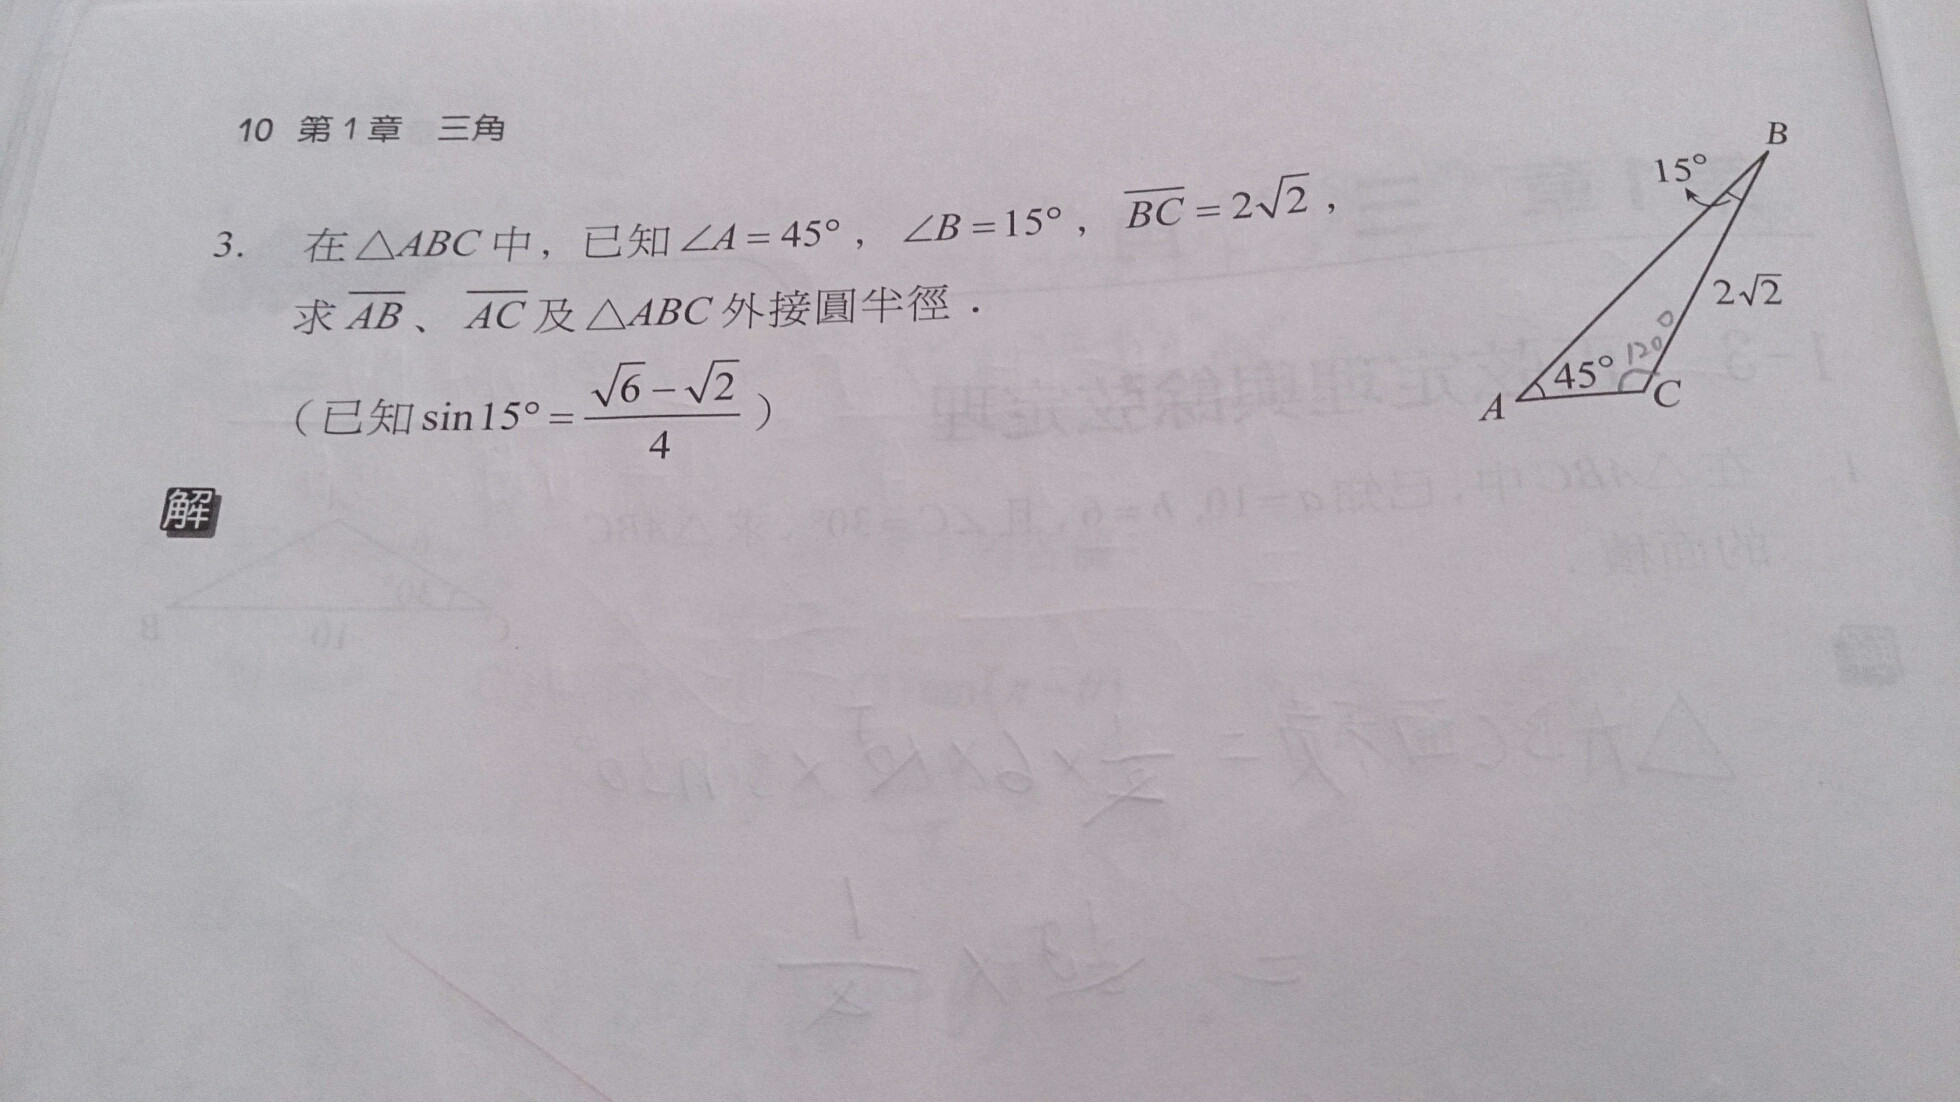 10 第1章 三角
3. 在△ABC中，已知∠A=45°，∠B=15°，$\overline{BC}=2\sqrt{2}$，
求 $\overline{AB}$、$\overline{AC}$ 及△ABC外接圓半徑．
（已知 $\sin 15°=\frac{\sqrt{6}-\sqrt{2}}{4}$）
解
B
15°
2√2
120°
45°
A
C